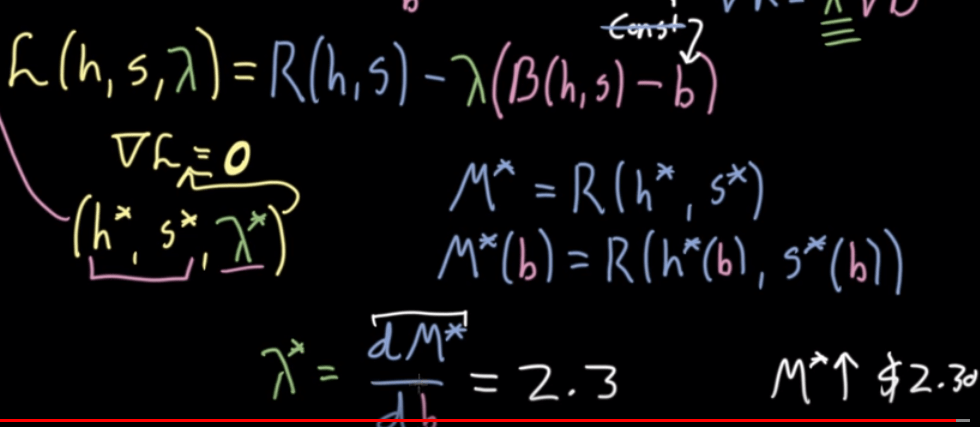 b
Const
ℒ(h, s, λ) = R(h, s) - λ(B(h, s) - b)
∇ℒ = 0
M* = R(h*, s*)
(h*, s*, λ*)
M*(b) = R(h*(b), s*(b))
λ* = dM*/db = 2.3
M*↑ $2.30